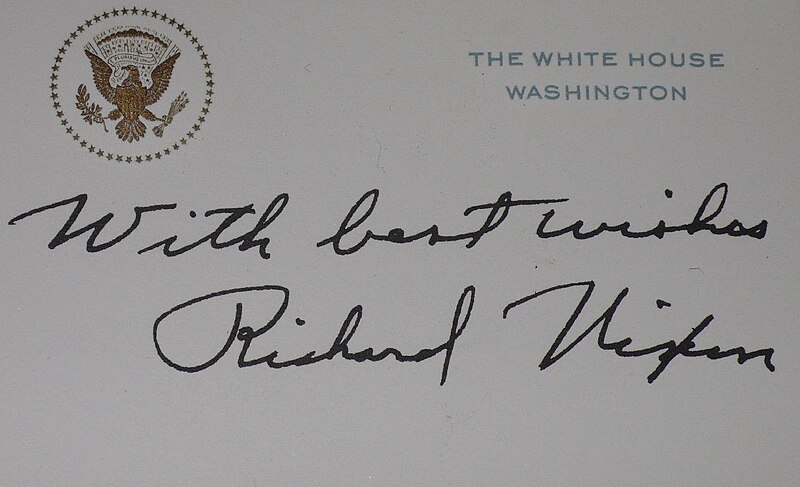 THE WHITE HOUSE
WASHINGTON
With best wishes
Richard Nixon